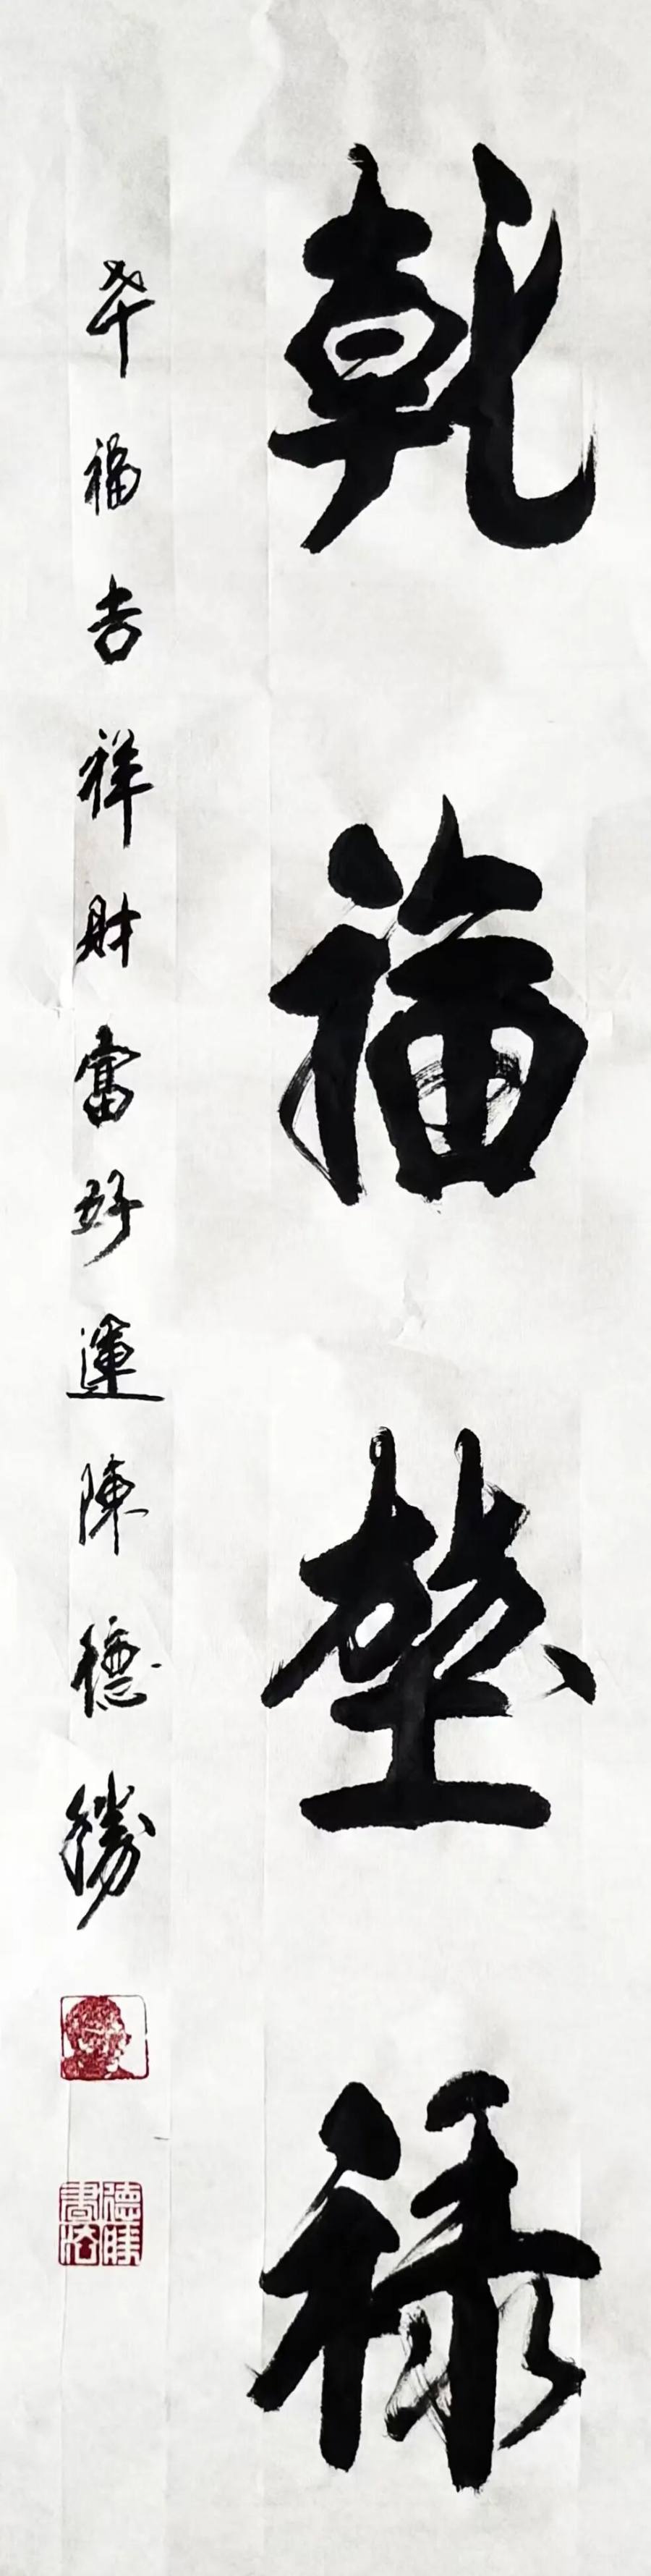 乾福堃禄
幸福吉祥財富好運陳德勝
德勝書法